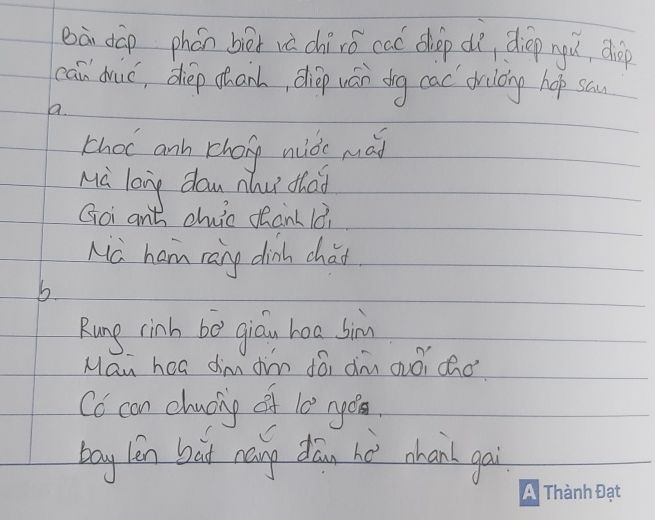 Bài tập phân biệt và chỉ rõ các điệp từ, điệp ngữ, điệp
cấu trúc, điệp thanh, điệp vần trg các trường hợp sau
a.
Khóc anh không nước mắt
Mà lòng đau như thắt
Gọi anh chửa thành lời
Mà hàm răng dính chặt.
b.
Rung rinh bờ giậu hoa bìm
Màu hoa tim tím tôi tìm tuổi thơ.
Có con chuồng ớt lơ ngơ,
bay lên bắt nắng đậu hờ nhành gai.
A Thành Đạt